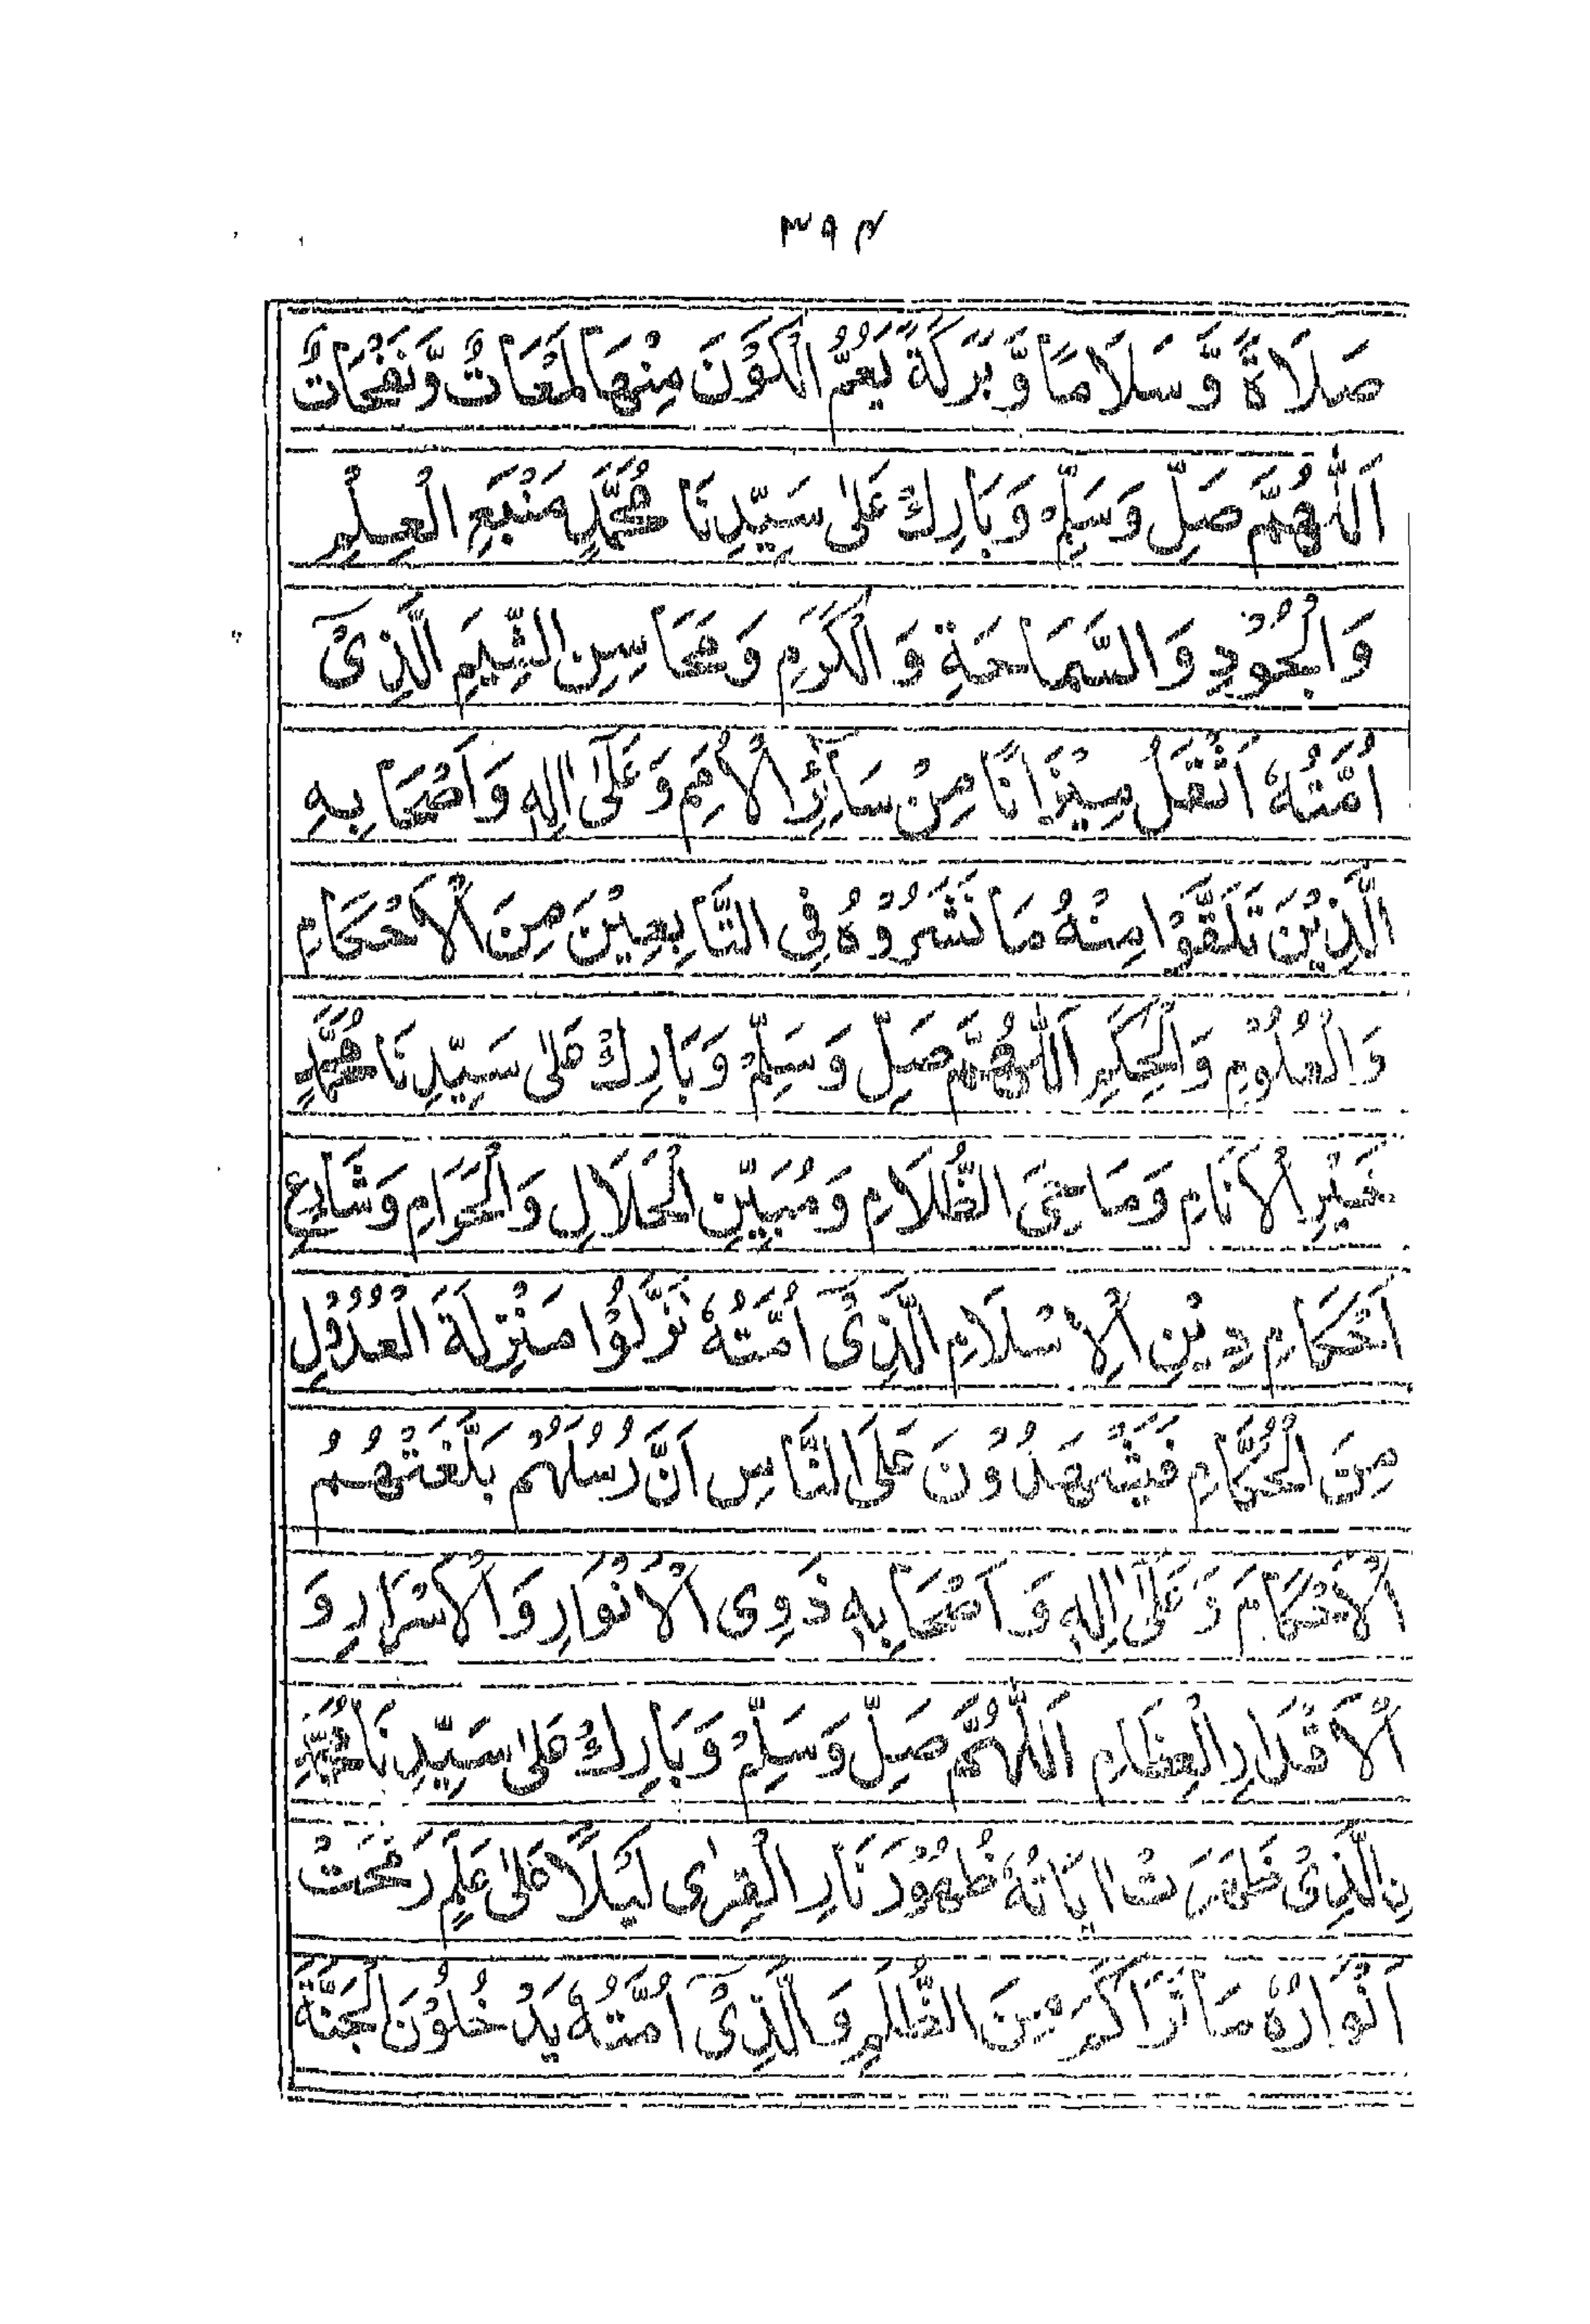 ۳۹۴
صَلَاةً وَّسَلَامًا وَّبَرَكَةً يَعُمُّ الْكَوْنَ مِنْهَا لَمَعَاتٌ وَّنَفَحَاتٌ
اَللّٰهُمَّ صَلِّ وَسَلِّمْ وَبَارِكْ عَلٰى سَيِّدِنَا مُحَمَّدٍ مَنْبَعِ الْعِلْمِ
وَالْجُوْدِ وَالسَّمَاحَةِ وَالْكَرَمِ وَمَحَاسِنِ الشِّيَمِ الَّذِىْٓ
اُمَّتُهٗ اَثْقَلُ مِيْزَانًا مِنْ سَآئِرِ الْاُمَمِ وَعَلٰٓى اٰلِهٖ وَاَصْحَابِهِ
الَّذِيْنَ تَلَقَّوْا مِنْهُ مَا نَشَرُوْهُ فِى التَّابِعِيْنَ مِنَ الْاَحْكَامِ
وَالْعُلُوْمِ وَالْحِكَمِ اَللّٰهُمَّ صَلِّ وَسَلِّمْ وَبَارِكْ عَلٰى سَيِّدِنَا مُحَمَّدٍ
خَيْرِ الْاَنَامِ وَمَاحِىَ الظَّلَامِ وَمُبَيِّنِ الْحَلَالِ وَالْحَرَامِ وَشَارِعِ
اَحْكَامِ دِيْنِ الْاِسْلَامِ الَّذِىْٓ اُمَّتُهٗ نَزَّلُوْا مَنْزِلَةَ الْعُدُوْلِ
مِنَ الْحُكَّامِ فَيَشْهَدُوْنَ عَلَى النَّاسِ اَنَّ رُسُلَهُمْ بَلَّغَتْهُمُ
الْاَحْكَامَ وَعَلٰٓى اٰلِهٖ وَاَصْحَابِهٖ ذَوِى الْاَنْوَارِ وَالْاَسْرَارِ وَ
الْاَقْدَارِ الْعِظَامِ اَللّٰهُمَّ صَلِّ وَسَلِّمْ وَبَارِكْ عَلٰى سَيِّدِنَا مُحَمَّدِ
نِ الَّذِىْ ظَهَرَتْ اٰيَاتُهٗ ظُهُوْرَ نَارِ الْقِرٰى لَيْلًا عَلٰى عَلَمٍ وَمَحَتْ
اَنْوَارُهٗ مَا تَرَاكَمَ مِنَ الظُّلَمِ وَالَّذِىْٓ اُمَّتُهٗ يَدْخُلُوْنَ الْجَنَّةَ